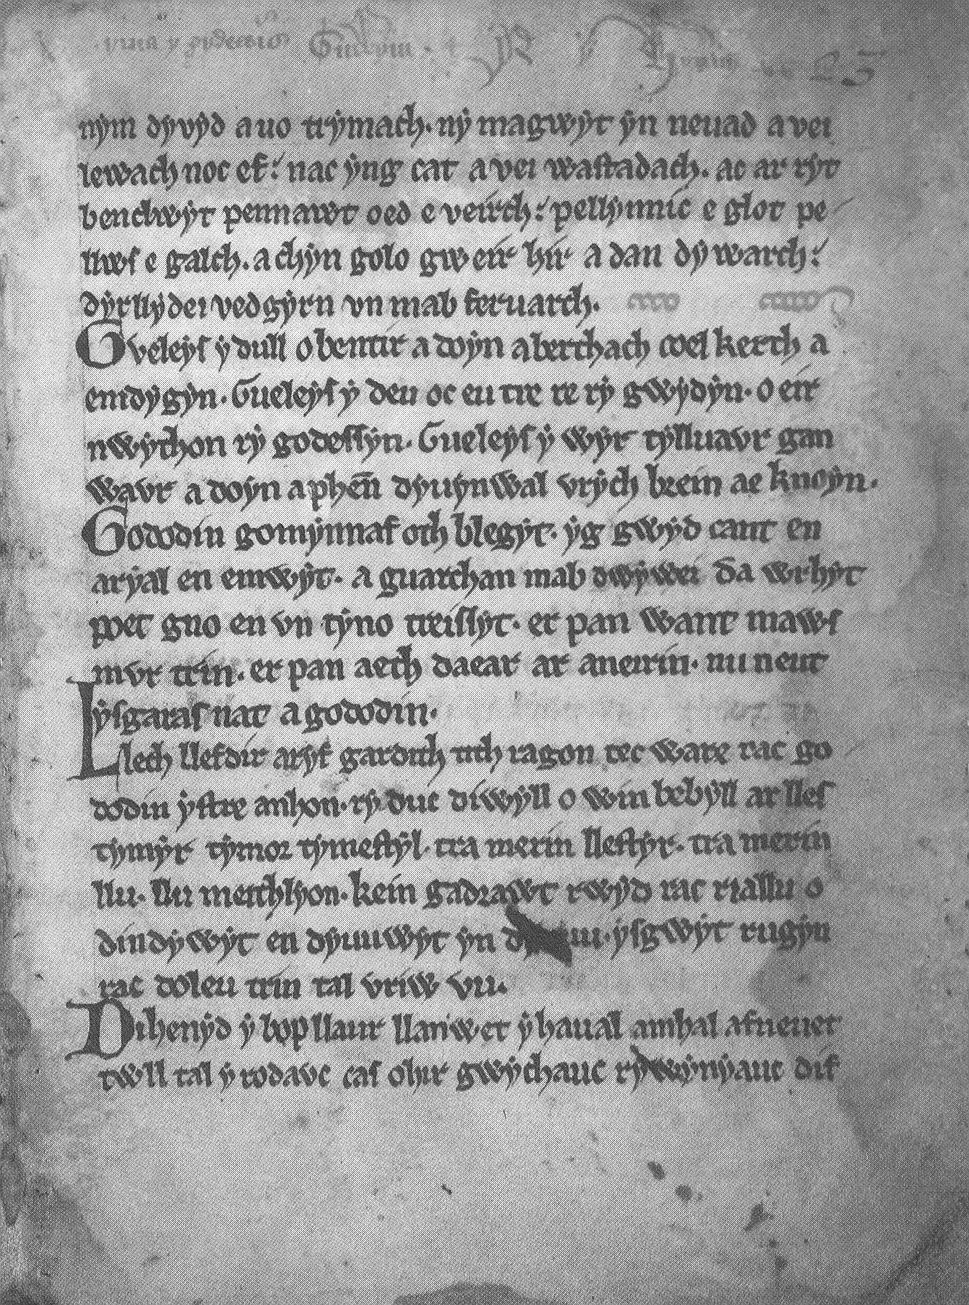 nym dyvyd a uo trymach. ny magwyt yn neuad a vei
lewach noc ef. nac yng cat a vei wastadach. ac ar ryt
benclwyt pennawt oed e veirch. pellynnic e glot pe
llws e galch. a chyn golo gweir hir a dan dywarch.
dyrllydei vedgyrn vn mab feruarch.
Gveleys y dull o bentir a doyn aberthach coelkerth a
emdygyn. Gueleys y deu oc eu tre re ry gwydyn. o eir
nwython ry godessyn. Gueleys y wyr tylluavr gan
wavr a doyn a phen dyuynwal vrych brein ae knoyn.
Gododin gomynnaf oth blegyt. yg gwyd cant en
aryal en emwyt. a guarchan mab dwywei da wrhyt
poet gno en vn tyno treissyt. er pan want maws
mvr trin. er pan aeth daear ar aneirin. nu neut
ysgaras nat a gododin.
Llech llefdir aryf gardith tith ragon tec ware rac go
dodin ystre anhon. ry duc diwyll o win bebyll ar lles
tymyr tymor tymestyl. tra merin llestyr. tra merin
llu. llu meithlyon. kein gadrawt rwyd rac riallu o
dindywyt en dyuuwyt yn ysgwyt rugyn
rac doleu trin tal vriw vu.
Dihenyd y bop llaur llanw et y haual amhal afneuet
twll tal y rodavc cas ohir gwychauc rywynyauc dif